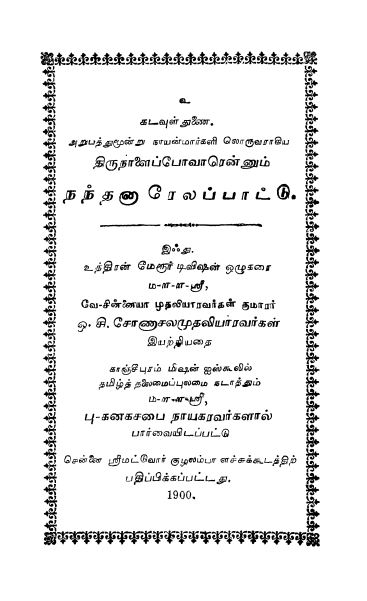 உ
கடவுள் துணை.
அறுபத்துமூன்று நாயன்மார்களி லொருவராகிய
திருநாளைப்போவாரென்னும்
நந்தனா ரேலப்பாட்டு.
இஃது.
உத்திரன் மேரூர் டிவிஷன் ஒழுகரை
ம-ள-ள-ஸ்ரீ,
வே-சின்னையா முதலியாரவர்கள் குமாரர்
ஒ. சி. சோணாசலமுதலியாரவர்கள்
இயற்றியதை
காஞ்சிபுரம் மிஷன் ஐஸ்கூலில்
தமிழ்த் தலைமைப்புலமை நடாத்தும்
ம-ள-ள-ஸ்ரீ,
பு-கனகசபை நாயகரவர்களால்
பார்வையிடப்பட்டு
சென்னை ஸ்ரீமட்வோர் குழலம்பா ளச்சுக்கூடத்திற்
பதிப்பிக்கப்பட்டது.
1900.